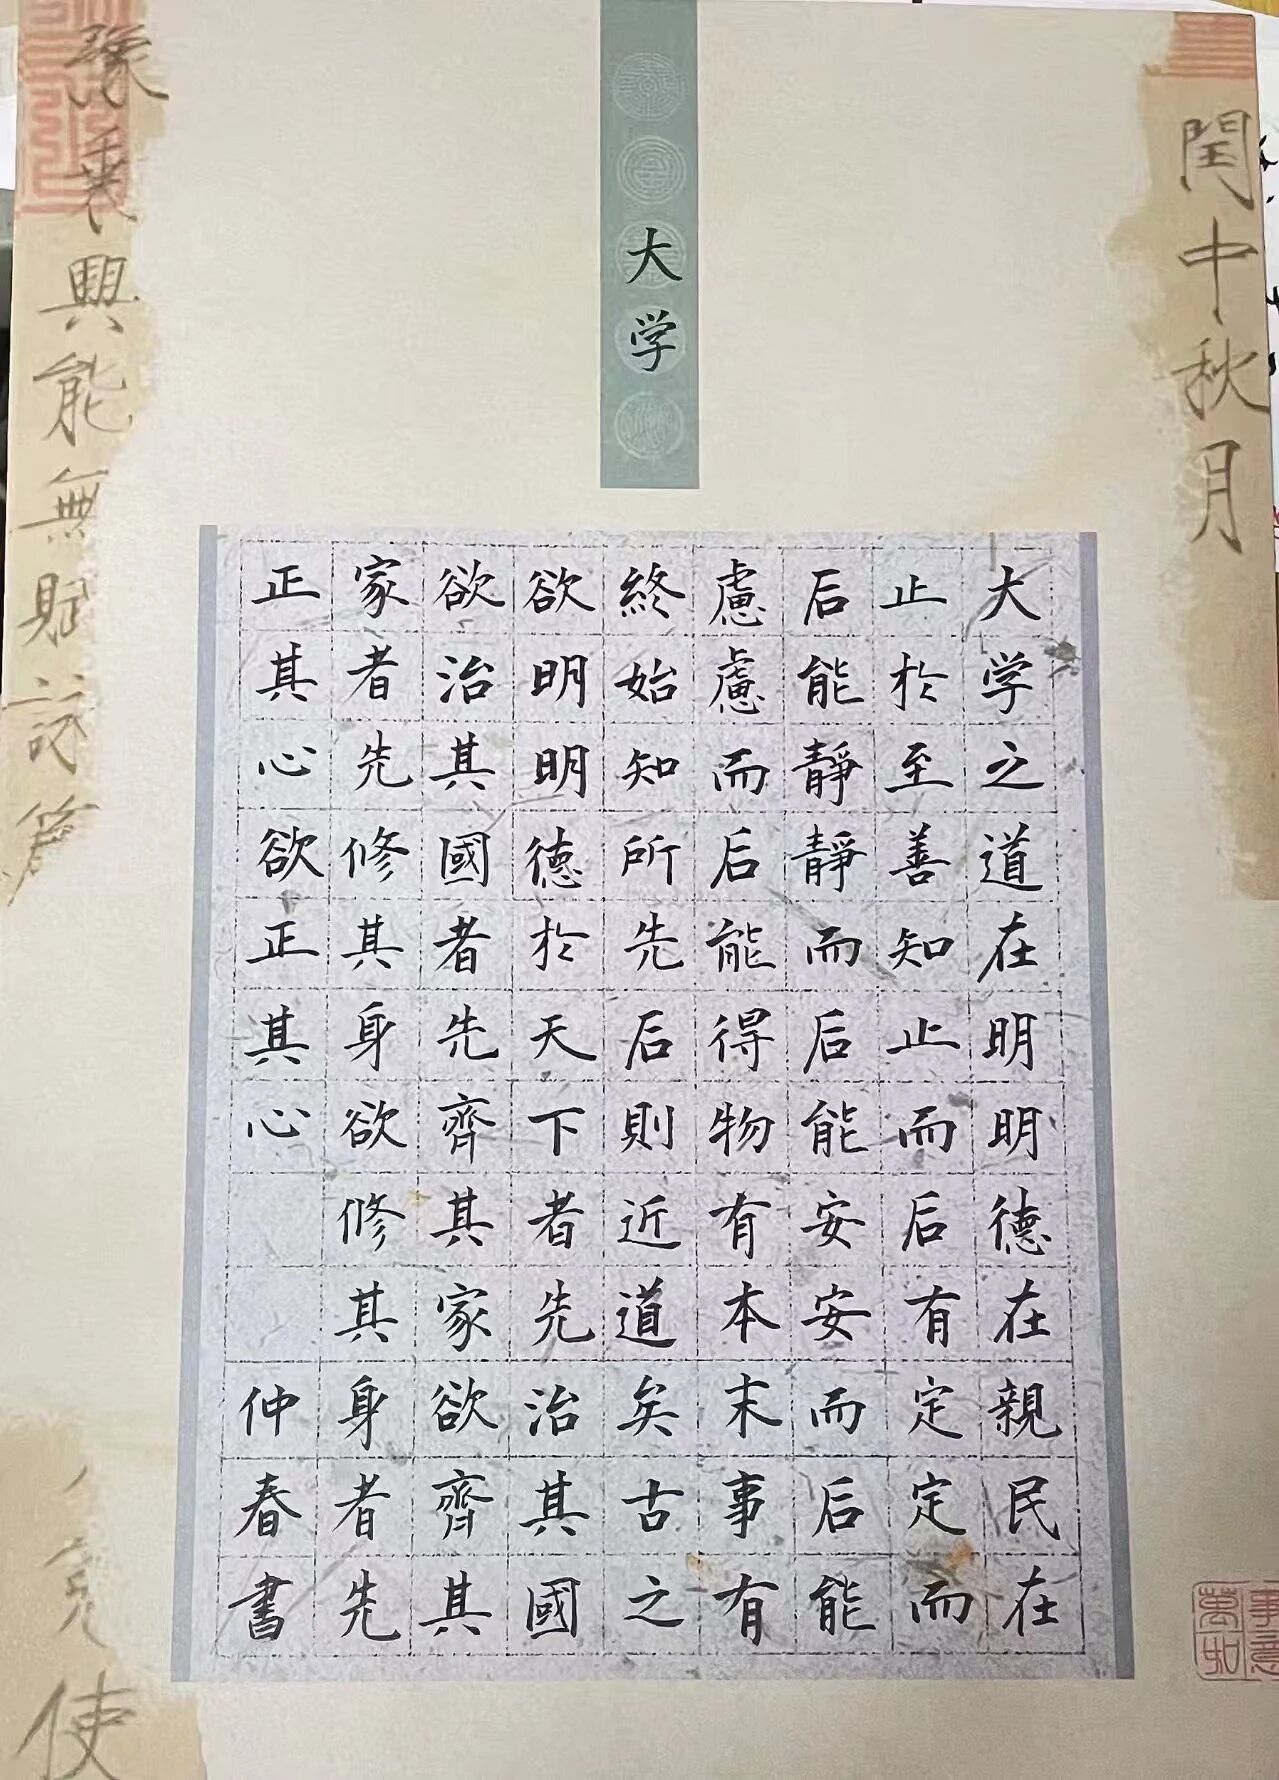 閏中秋月
大学
大学之道在明明德在親民在
止於至善知止而后有定定而
后能靜靜而后能安安而后能
慮慮而后能得物有本末事有
終始知所先后則近道矣古之
欲明明德於天下者先治其國
欲治其國者先齊其家欲齊其
家者先修其身欲修其身者先
正其心欲正其心 仲春書
豫乘興能無賦詠篇
免使